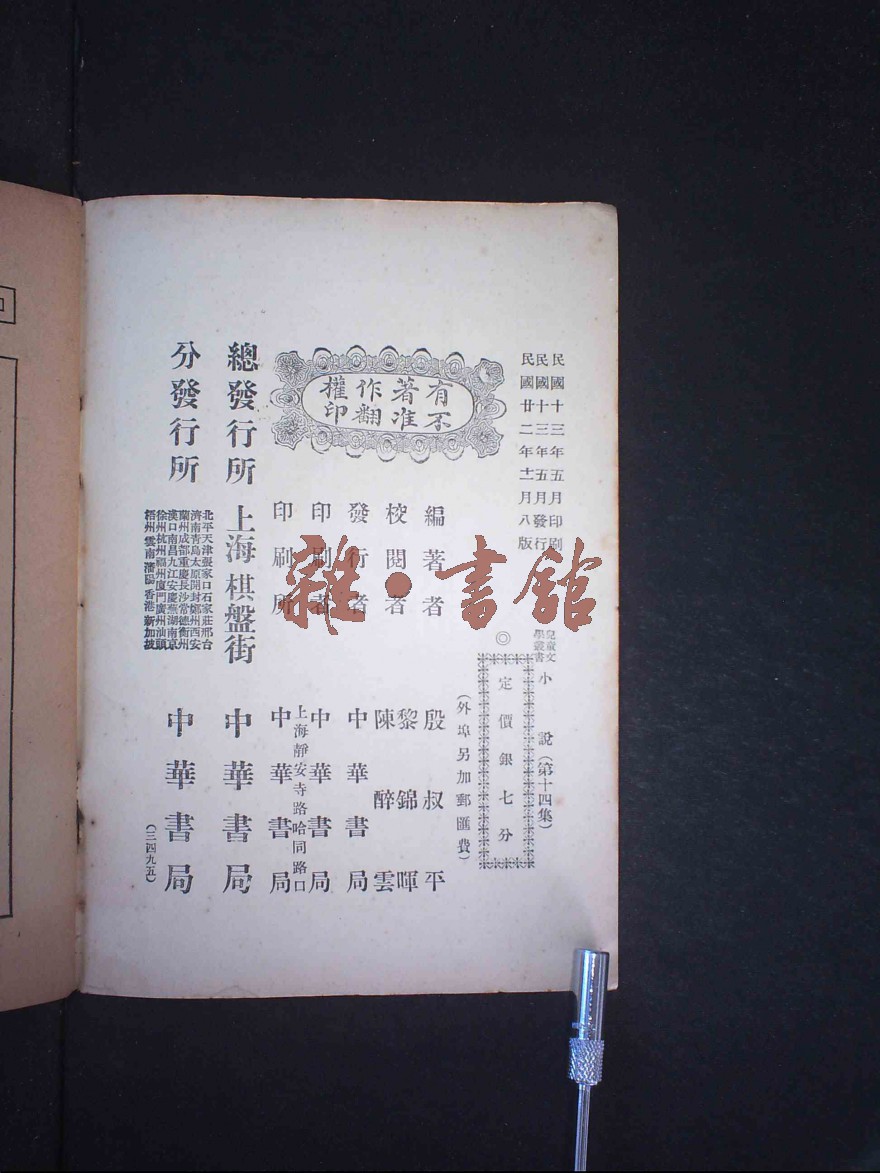 民國十三年五月印刷
民國十三年五月發行
民國廿二年十一月八版
兒童文
學叢書
小說（第十四集）
◎
定價銀七分
（外埠另加郵匯費）
有著作權
不准翻印
編著者 殷叔平
校閱者 黎錦暉
陳醉雲
發行者 中華書局
印刷者 中華書局
上海靜安寺路哈同路口
印刷所 中華書局
總發行所 上海棋盤街 中華書局
分發行所
北平天津張家口石家莊邢台
濟南青島太原開封鄭州西安
蘭州成都重慶長沙常德衡州
漢口南昌九江安慶蕪湖南京
徐州杭州福州廈門廣州汕頭
梧州雲南瀋陽香港新加坡
中華書局
（三四九五）
雜·書館